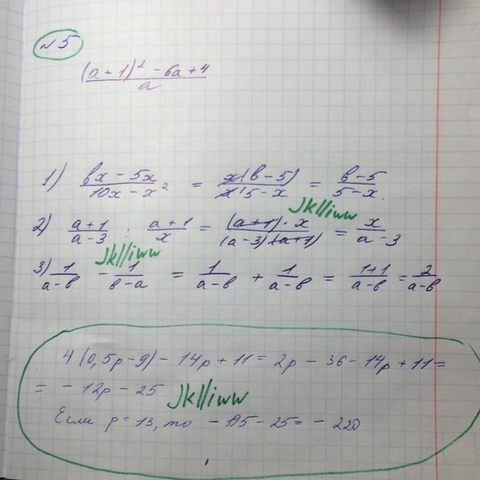 №5
(a+1)² - 6a + 4 / a
1) bx - 5x / 10x - x² = x(b-5) / x(5-x) = b-5 / 5-x
2) a+1 / a-3 : a+1 / x = (a+1)·x / (a-3)(a+1) = x / a-3
Jklliww
3) 1 / a-b - 1 / b-a = 1 / a-b + 1 / a-b = 1+1 / a-b = 2 / a-b
Jklliww
4(0,5p-9) - 14p + 11 = 2p - 36 - 14p + 11 =
= -12p - 25
Jklliww
Если p = 13, то -195 - 25 = -220